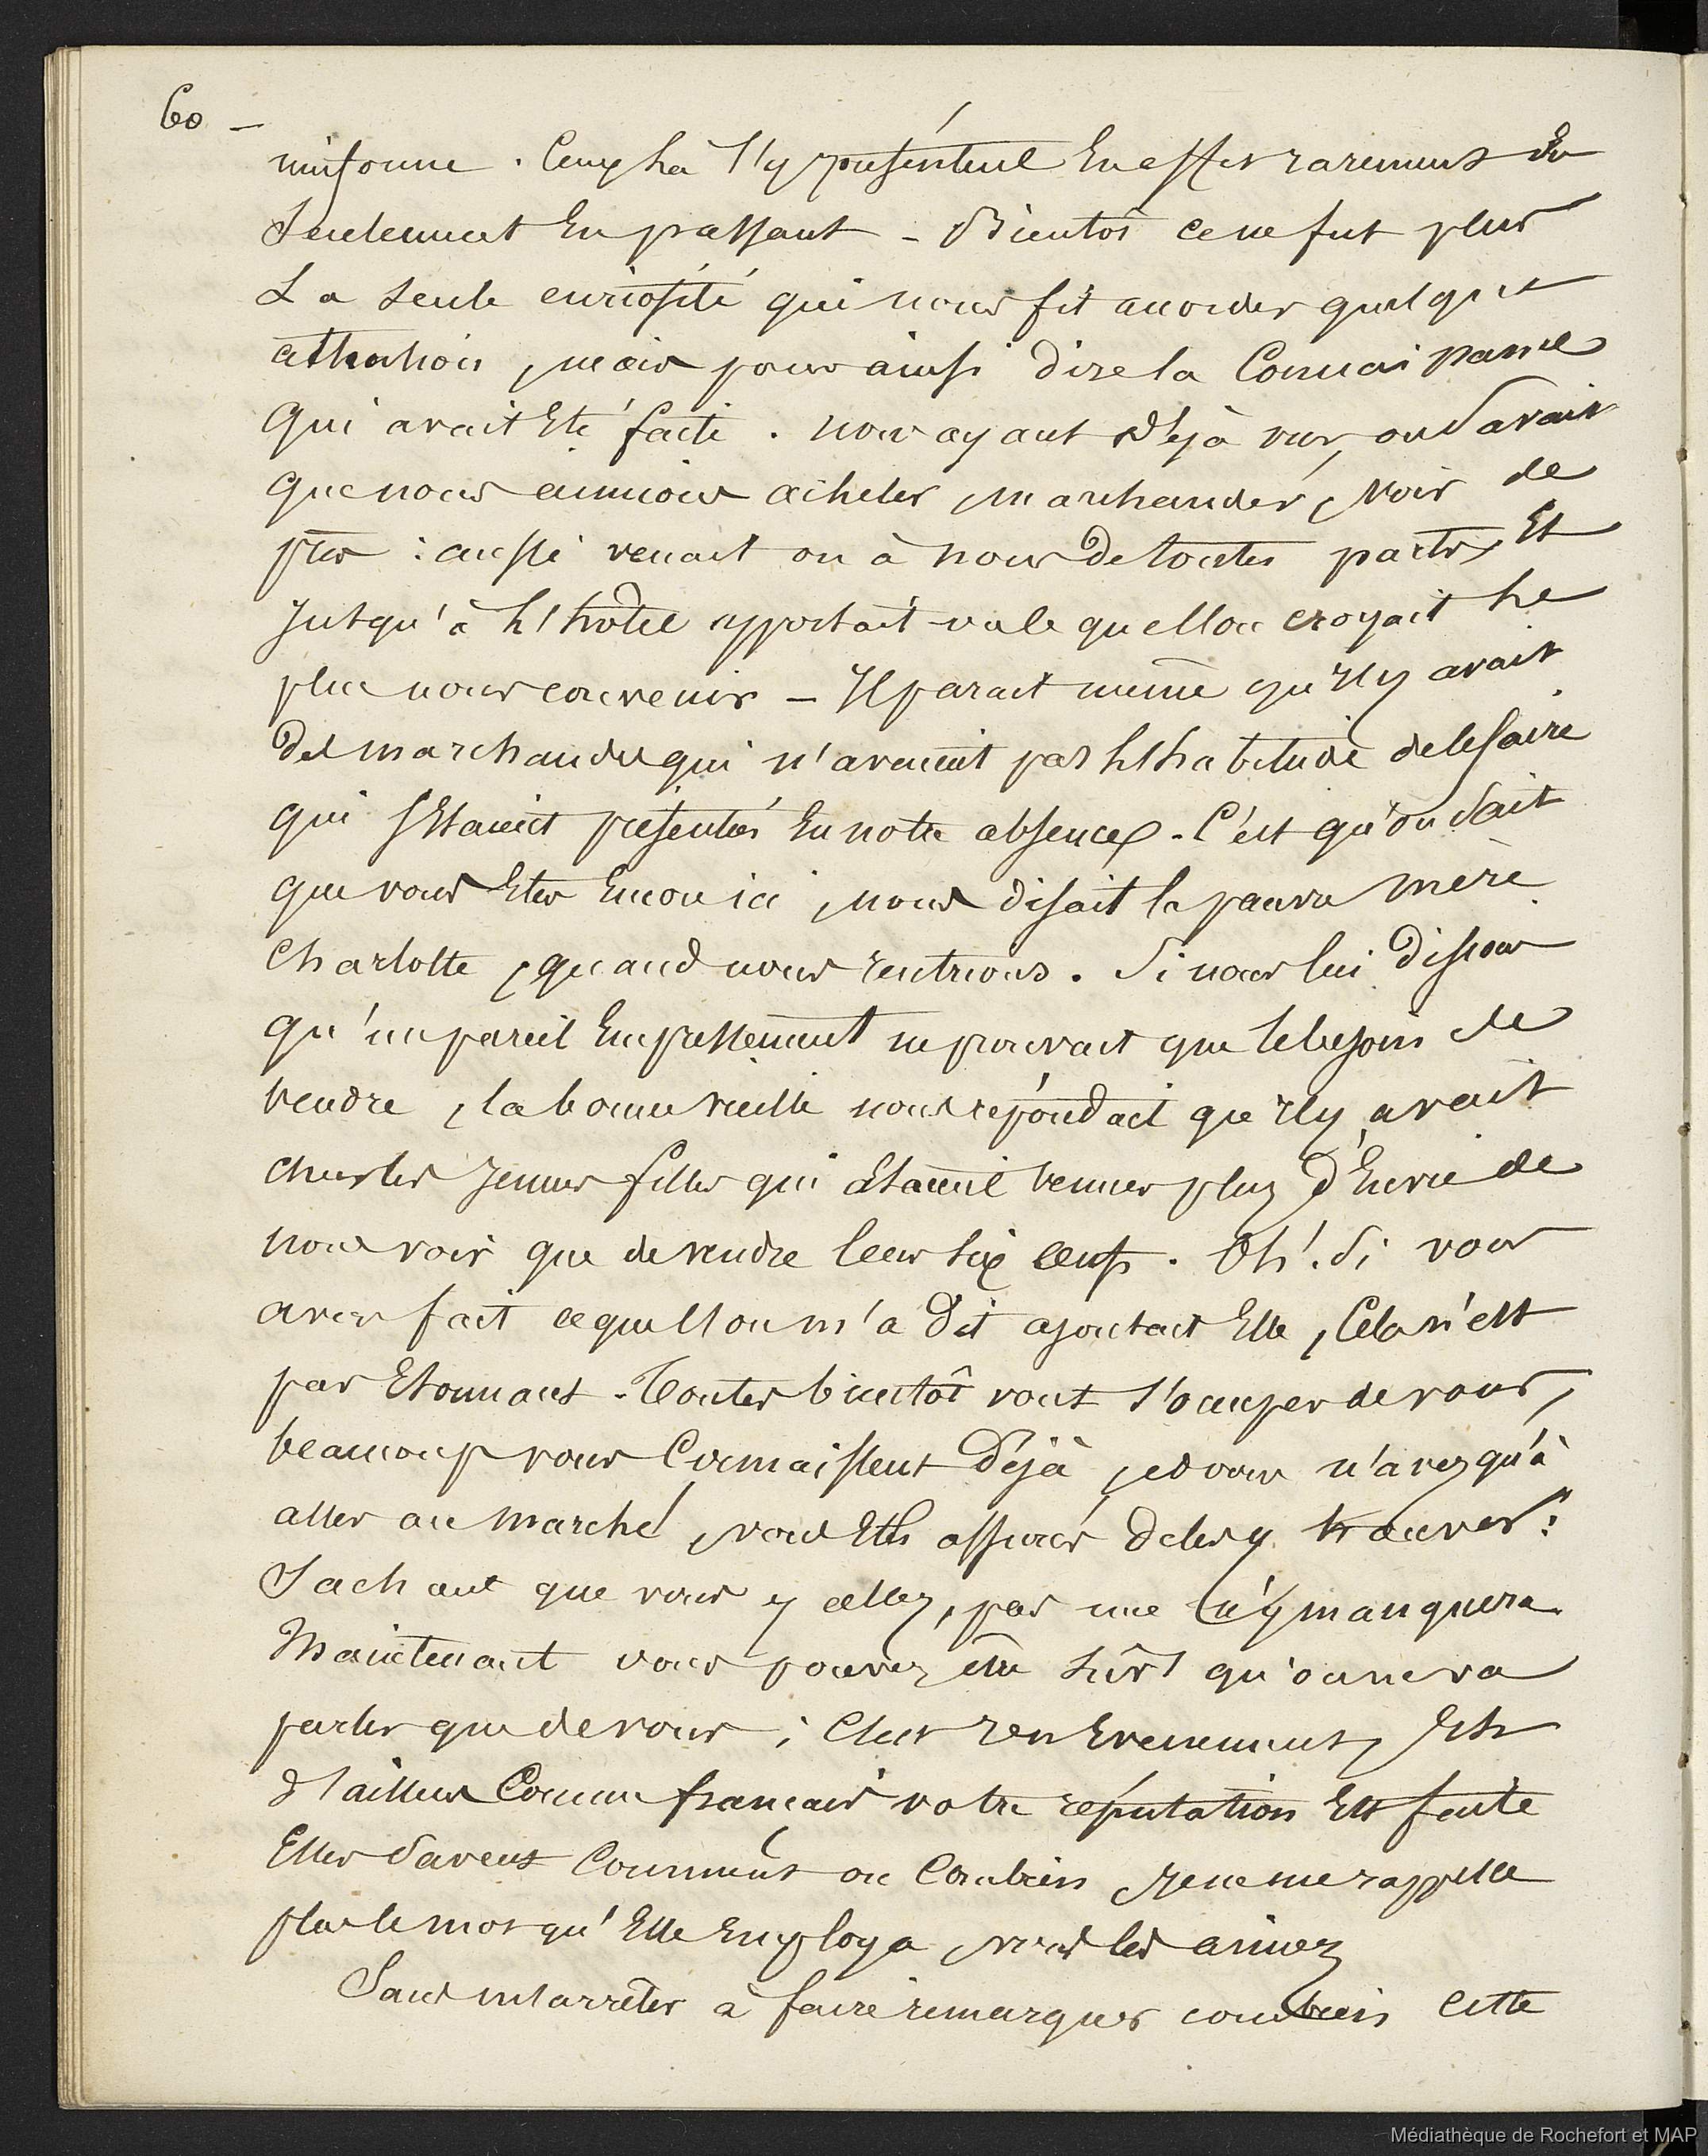 60 –
uniforme. Ceux là s'y présentent en effet rarement ou
seulement en passant – Bientôt ce ne fut plus
La seule curiosité qui nous fit accorder quelque
attention, mais pour ainsi dire la Connaissance
qui avait été faite. nous ayant déjà vus, on savait
que nous aimions acheter, marchander, voir de
près : aussi venait on à nous de toutes parts, Et
jusqu'à l'hôtel apportait-on le que l'on croyait le
plus nous convenir – Il parait même qu'il y avait
des marchandes qui n'avaient pas l'habitude de le faire
qui s'étaient présentées en notre absence. C'est qu'on sait
que vous êtes encore ici, nous disait la pauvre mère
Charlotte, quand nous rentrions. Si nous lui disions
qu'un pareil empressement ne prouvait que le besoin de
vendre, la bonne vieille nous répondait qu'il y avait
chez les jeunes filles qui étaient venues plus d'envie de
nous voir que de vendre leur six œufs. Oh! Si vous
avez fait ce que l'on m'a dit ajoutait Elle, Cela n'est
pas Etonnant. Toutes bientôt vont s'occuper de vous,
beaucoup vous Connaissent Déjà, et vous n'avez qu'à
aller au marché, vous êtes assurés de les y trouver :
Sachant que vous y allez, pas une n'y manquera.
Maintenant vous pouvez être sûrs qu'on ne va
parler que de vous ; C'est un Evenement, Et
d'ailleurs Comme français votre réputation Est faite
Elles savent Comment ou Combien, je ne me rappelle
plus le mot qu'Elle Employa, vous les aimez
Sans m'arrêter à faire remarquer combien cette
Médiathèque de Rochefort et MAP